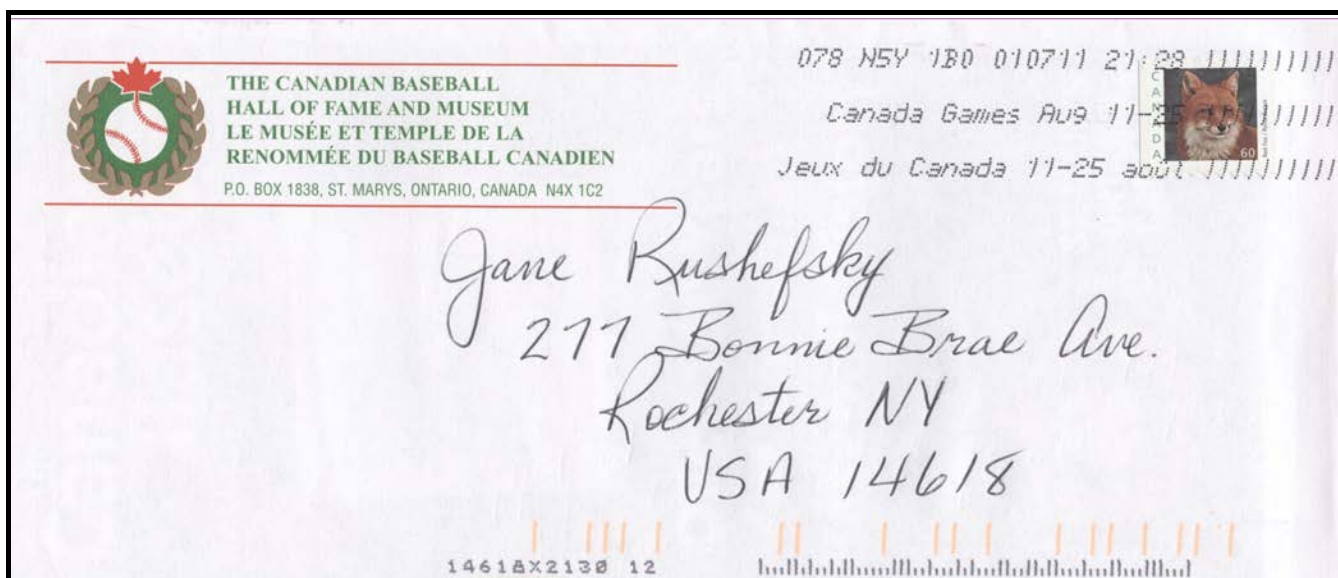 THE CANADIAN BASEBALL
HALL OF FAME AND MUSEUM
LE MUSÉE ET TEMPLE DE LA
RENOMMÉE DU BASEBALL CANADIEN
P.O. BOX 1838, ST. MARYS, ONTARIO, CANADA N4X 1C2
078 N5Y 1B0 010711 21:28
Canada Games Aug 11-25
Jeux du Canada 11-25 août
CANADA
60
Jane Rushefsky
277 Bonnie Brae Ave.
Rochester NY
USA 14618
14618X2130 12